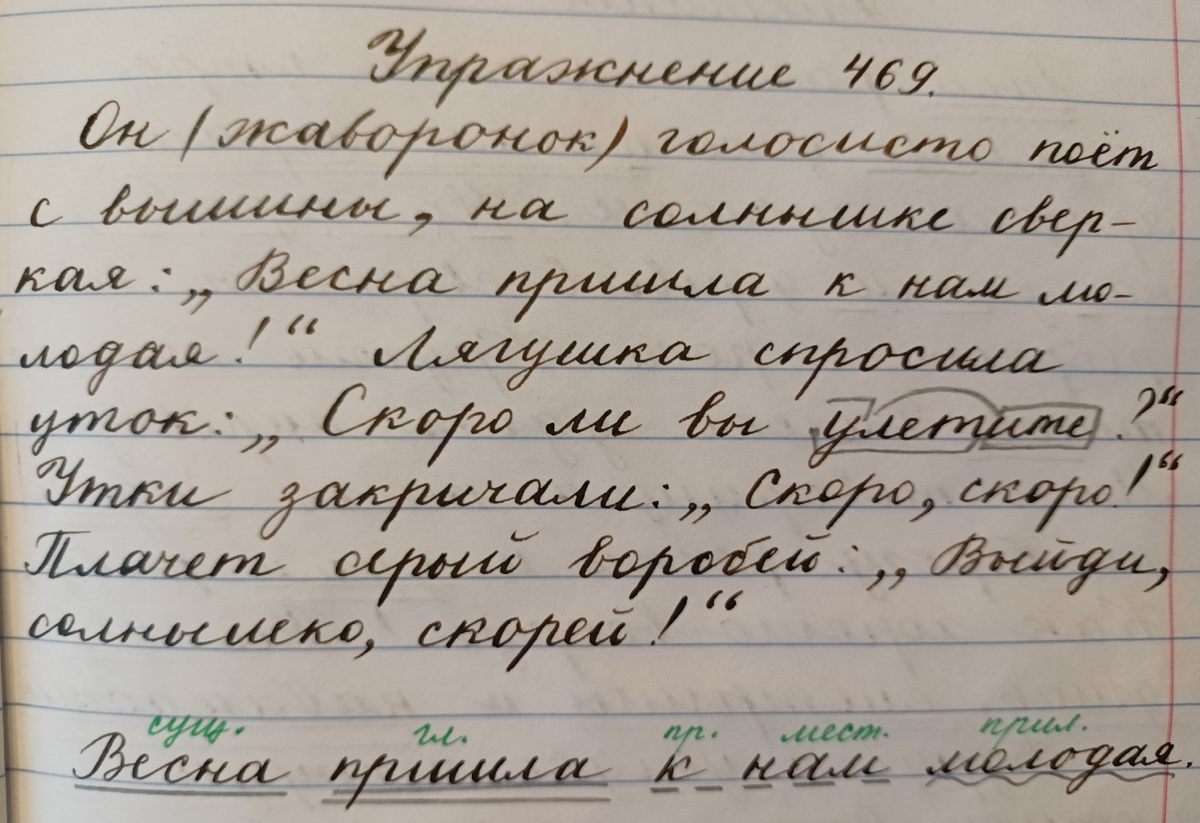 Упражнение 469.
Он (жаворонок) голосисто поёт
с вышины, на солнышке свер-
кая: „Весна пришла к нам мо-
лодая!“ Лягушка спросила
уток: „Скоро ли вы улетите?“
Утки закричали: „Скоро, скоро!“
Плачет серый воробей: „Выйди,
солнышко, скорей!“
сущ. гл. пр. мест. прил.
Весна пришла к нам молодая.